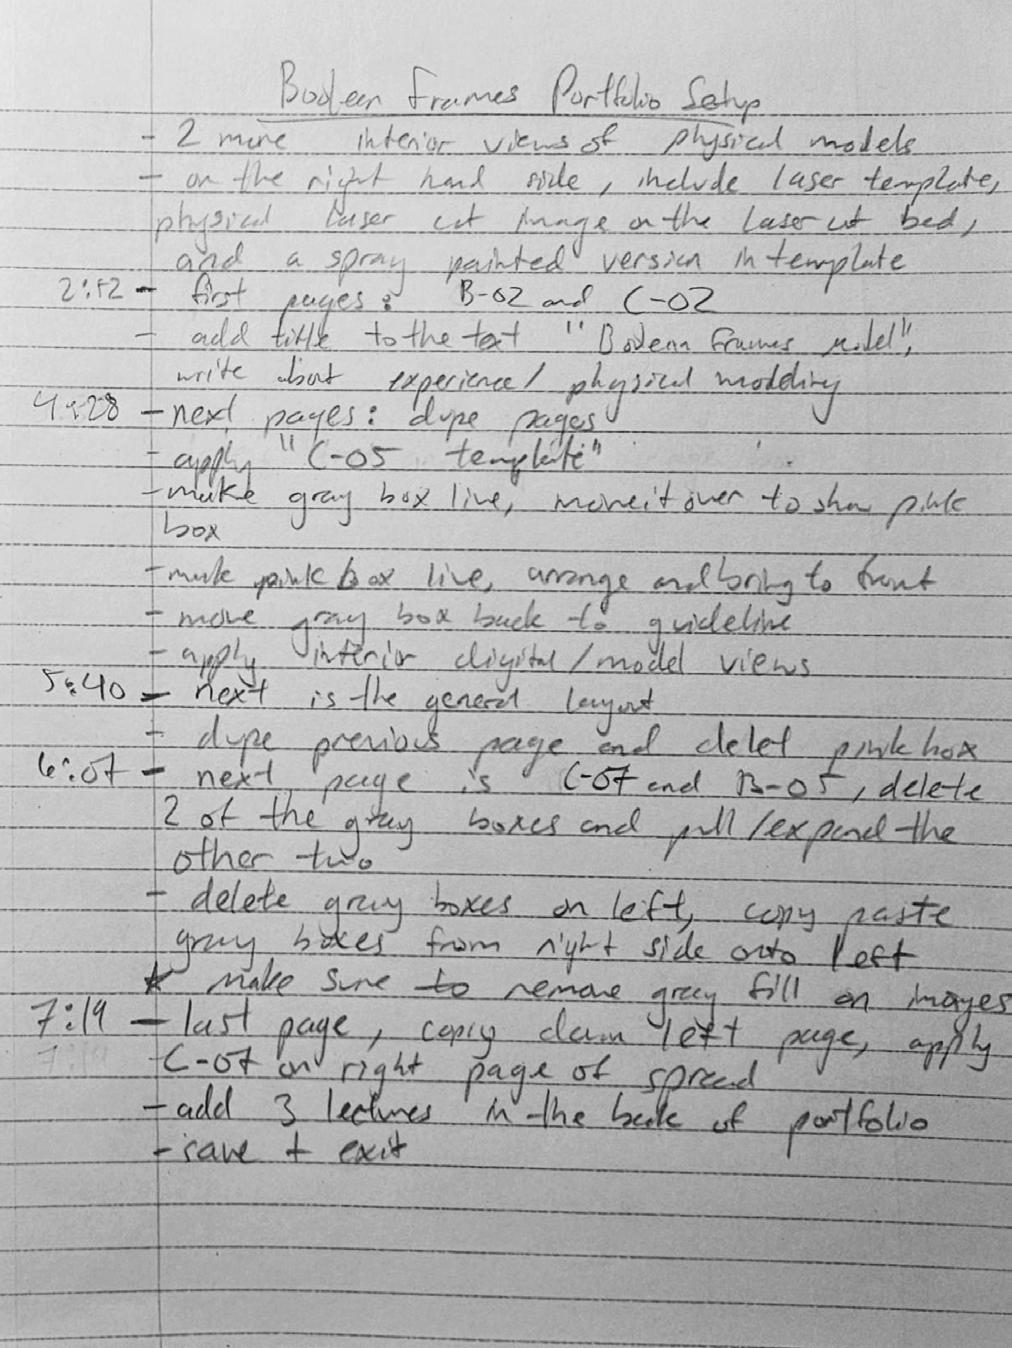 Boolean Frames Portfolio Setup
- 2 more interior views of physical models
- on the right hand side, include laser template,
physical laser cut image on the laser cut bed,
and a spray painted version in template
2:12 - first pages: B-02 and C-02
- add title to the text "Boolean Frames model",
write about experience/physical modeling
4:28 - next pages: dupe pages
- apply "C-05 template"
- make gray box live, move it over to show pink
box
- make pink box live, arrange and bring to front
- move gray box back to guideline
- apply interior digital/model views
5:40 - next is the general layout
- dupe previous page and delet pink box
6:07 - next page is C-07 and B-05, delete
2 of the gray boxes and pull/expand the
other two
- delete gray boxes on left, copy paste
gray boxes from right side onto left
* make sure to remove gray fill on images
7:19 - last page, copy down left page, apply
C-07 on right page of spread
- add 3 lectures in the back of portfolio
- save + exit